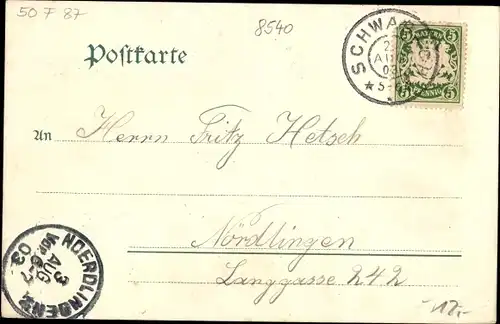 50 F 87
8540
Postkarte
SCHWAB
2
AUG
03
★ 5-
BAYERN
5 5
5 PFENNIG 5
An Herrn Fritz Hetsch
Nördlingen
Langgasse 242
NOERDLINGEN 2.
3
AUG
Vor. 6-7
03
-12.-